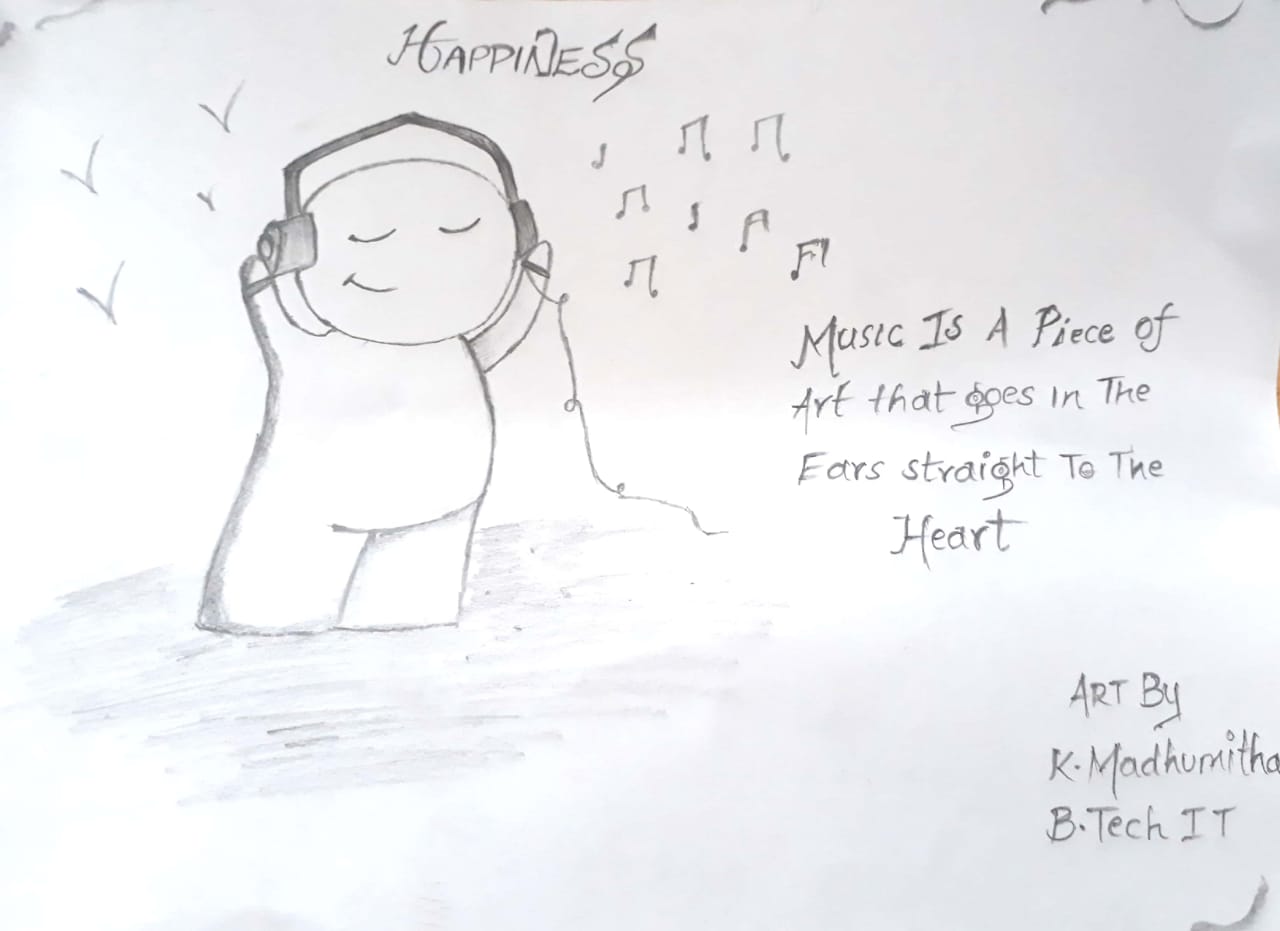 HAPPINESS
Music Is A Piece of
Art that goes in The
Ears straight To The
Heart
ART By
K.Madhumitha
B.Tech IT